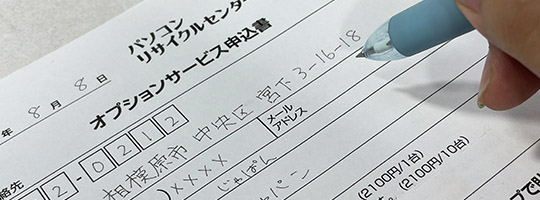 パソコン
リサイクルセンター
オプションサービス申込書
年 8 月 8 日
絡先
2-0212
相模原市 中央区 宮下3-16-18
)xxxx
メール
アドレス
じゃぱん
パン
(2100円/1台)
(2100円/10台)
プで貼